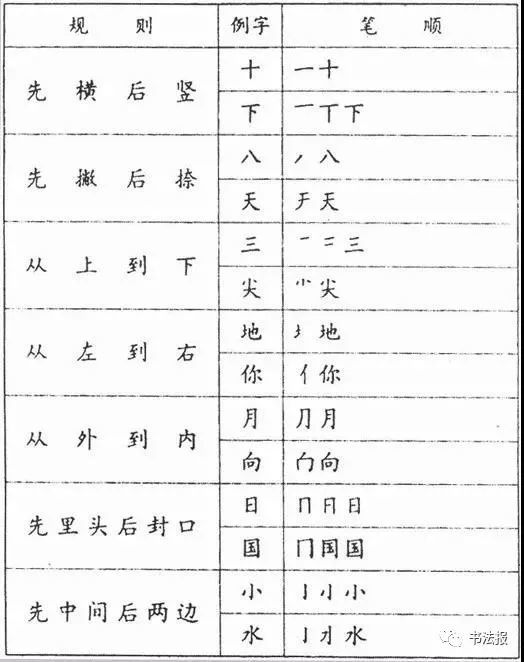 规则 例字 笔顺
先横后竖 十 一十
下 一丅下
先撇后捺 八 丿八
天 チ天
从上到下 三 一二三
尖 ⺌尖
从左到右 地 地
你 亻你
从外到内 月 ⺆月
向 向
先里头后封口 日 冂日
国 冂国国
先中间后两边 小 亅小
水 亅水
书法报